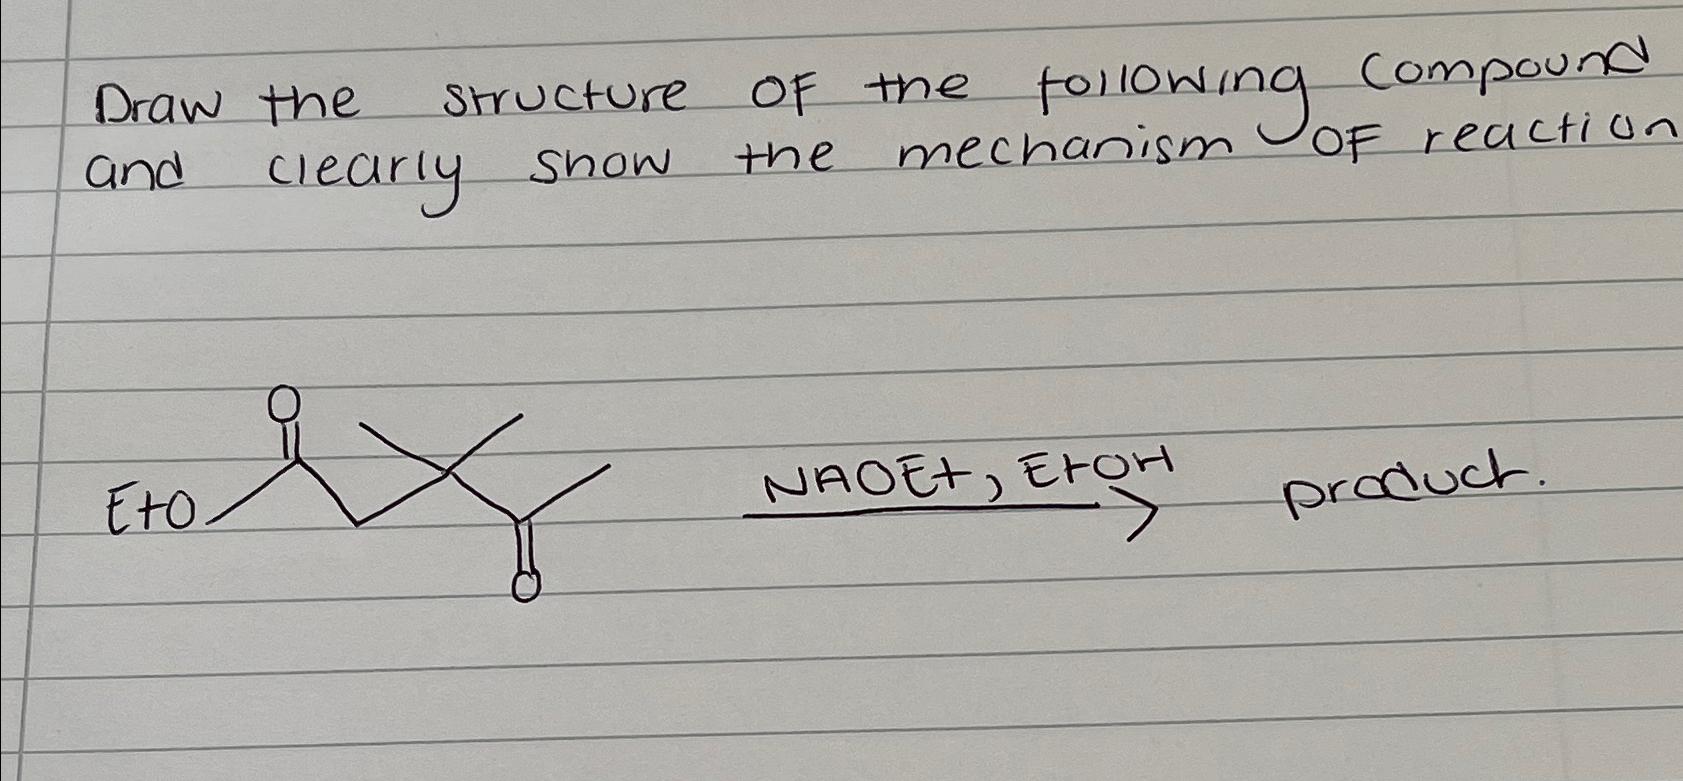 Draw the structure OF the following compound
and clearly show the mechanism OF reaction
O
EtO
O
NAOEt, EtOH
product.